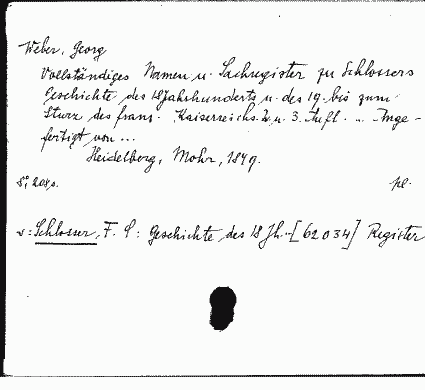 Weber, Georg
Vollständiges Namen u. Sachregister zu Schlossers
Geschichte des 18 Jahrhunderts u. des 19. bis zum
Sturz des franz. Kaiserreichs. 2. u. 3. Aufl. ... Ange-
fertigt von ...
Heidelberg, Mohr, 1849.
8°, 208 s.
pl.
v: Schlosser, F. C: Geschichte des 18 Jh. - [62034] Register